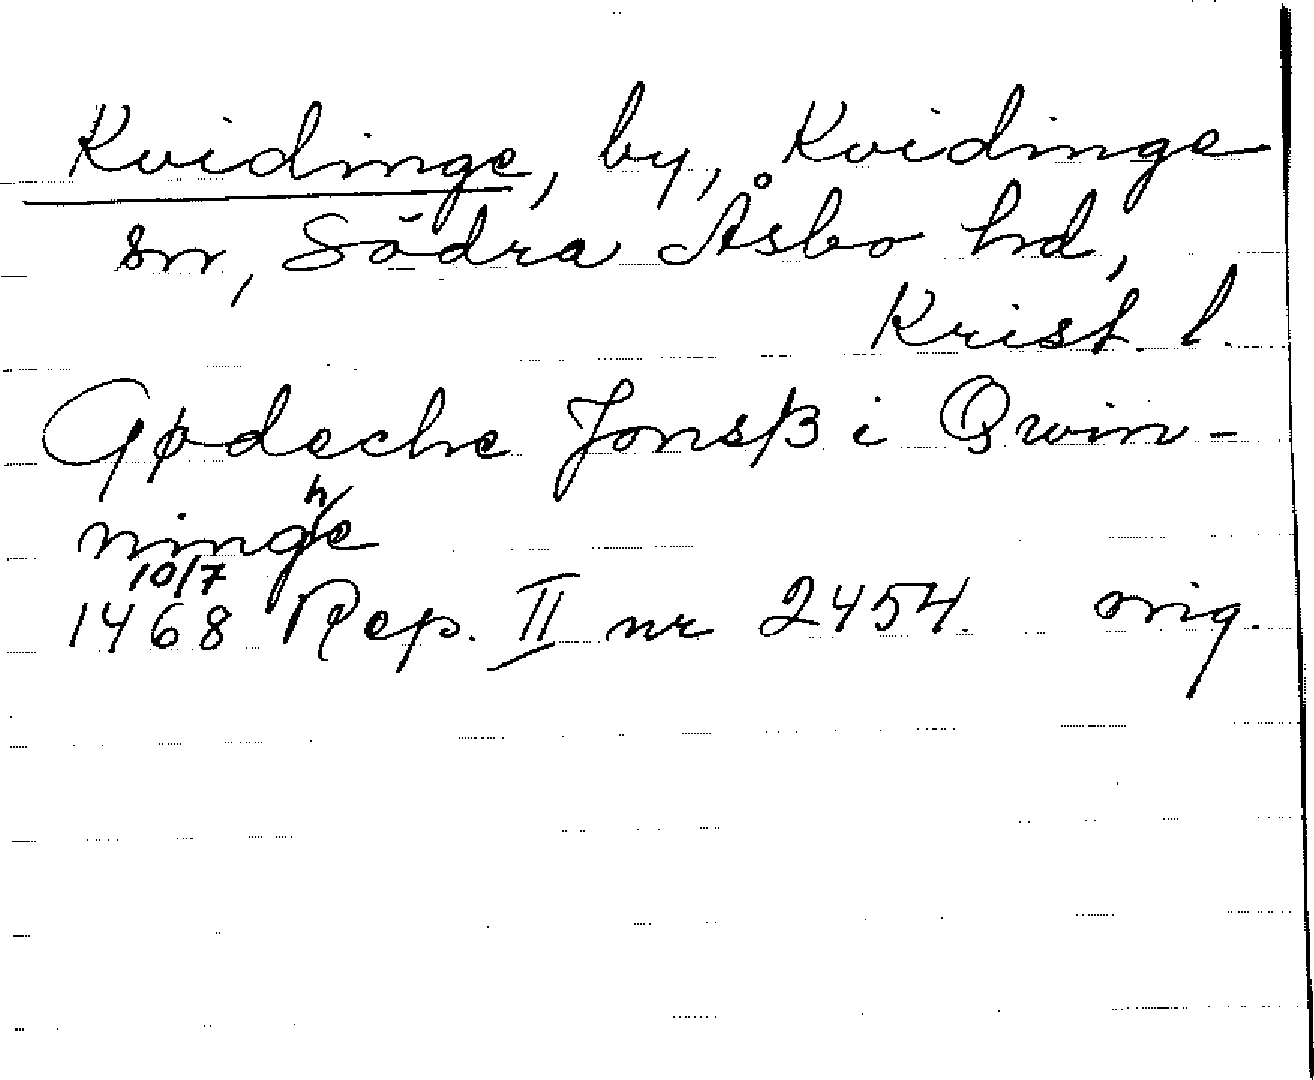 Kvidinge, by, Kvidinge
sn, Södra Åsbo hd,
Krist. l.
Gødeche Jonsβ i Qwin-
ninghe
10/7
1468 Rep. II nr 2454. orig.